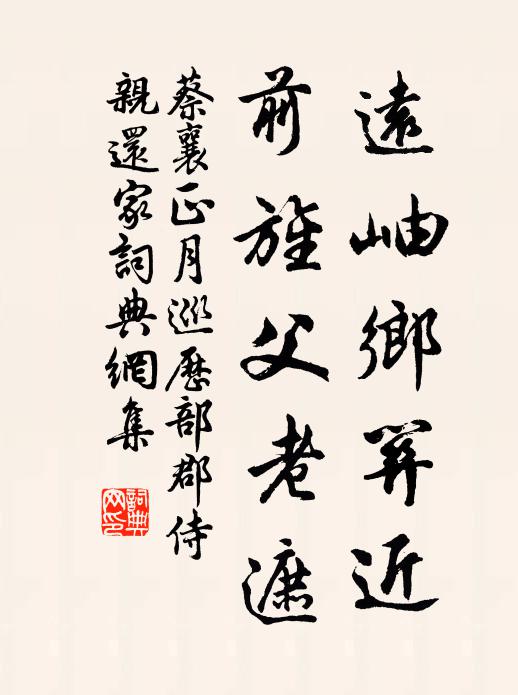 遠岫鄉筭近
前旌父老遮
蔡襄正月巡歷部郡侍
親還家詞典網集
詞典网印